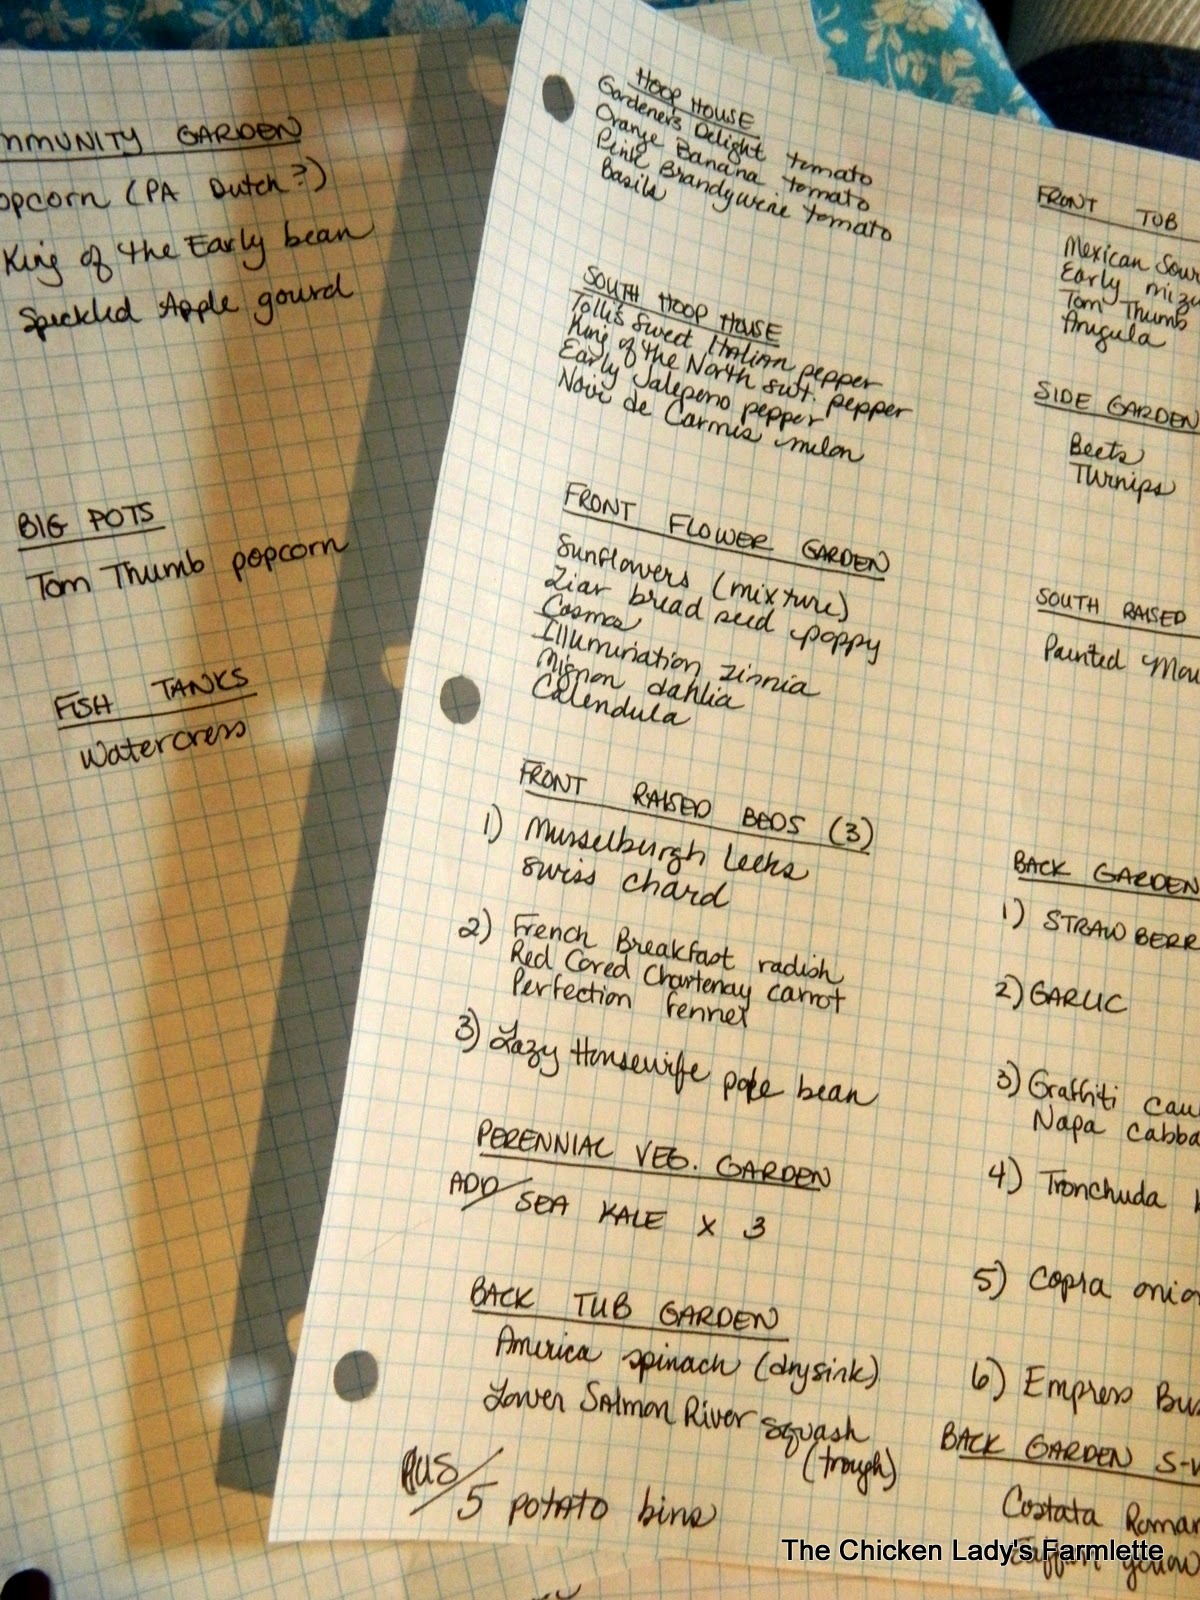 MMUNITY GARDEN
opcorn (PA Dutch?)
King of the Early bean
Speckled Apple gourd
BIG POTS
Tom Thumb popcorn
FISH TANKS
Watercress
HOOP HOUSE
Gardener's Delight tomato
Orange Banana tomato
Pink Brandywine tomato
Basils
SOUTH HOOP HOUSE
Tolli's Sweet Italian pepper
King of the North swt. pepper
Early Jalepeno pepper
Noir de Carmes melon
FRONT FLOWER GARDEN
Sunflowers (mixture)
Ziar bread seed poppy
Cosmos
Illumination zinnia
Mignon dahlia
Calendula
FRONT RAISED BEDS (3)
1) Musselburgh leeks
swiss chard
2) French Breakfast radish
Red Cored Chantenay carrot
Perfection fennel
3) Lazy Housewife pole bean
PERENNIAL VEG. GARDEN
ADD/ SEA KALE x 3
BACK TUB GARDEN
America spinach (drysink)
Lower Salmon River squash
(trough)
PLUS/ 5 POTATO bins
FRONT TUB
Mexican Sour
Early mizu
Tom Thumb
Arugula
SIDE GARDEN
Beets
Turnips
SOUTH RAISED
Painted Mou
BACK GARDEN
1) STRAWBERR
2) GARLIC
3) Graffiti cau
Napa cabba
4) Tronchuda
5) Copra onio
6) Empress Bus
BACK GARDEN S-W
Costata Roman
yellow
The Chicken Lady's Farmlette